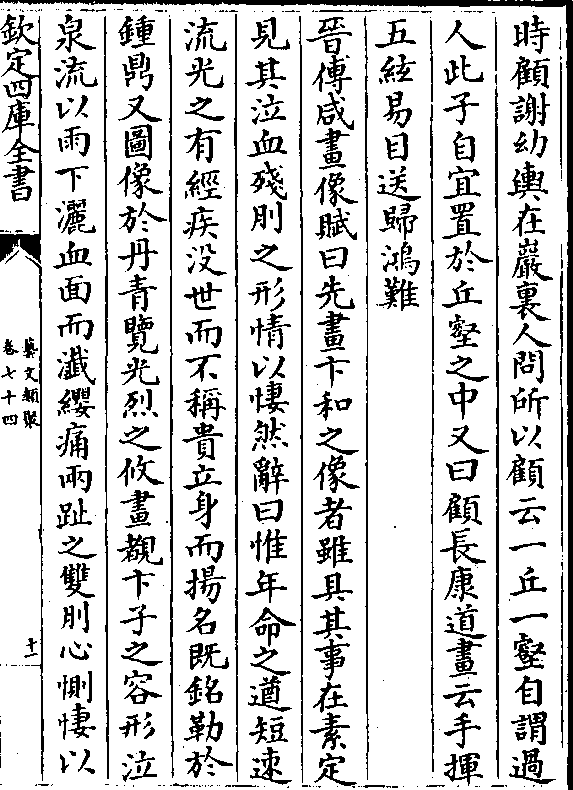 時顧謝幼輿在巖裏人問所以顧云一丘一壑自謂過
人此子自宜置於丘壑之中又曰顧長康道畫云手揮
五絃易目送歸鴻難
晉傅咸畫像賦曰先畫卞和之像者雖具其事在素定
見其泣血殘刖之形情以悽然辭曰惟年命之遒短速
流光之有經疾没世而不稱貴立身而揚名既銘勒於
鍾鼎又圖像於丹青覽光烈之攸畫覩卞子之容形泣
泉流以雨下灑血面而瀸纓痛兩趾之雙刖心惻悽以
欽定四庫全書
藝文類聚
卷七十四
十一